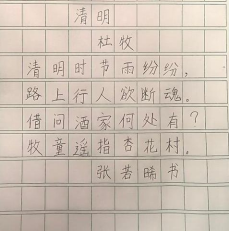 清明
杜牧
清明时节雨纷纷，
路上行人欲断魂。
借问酒家何处有？
牧童遥指杏花村。
张若晴书